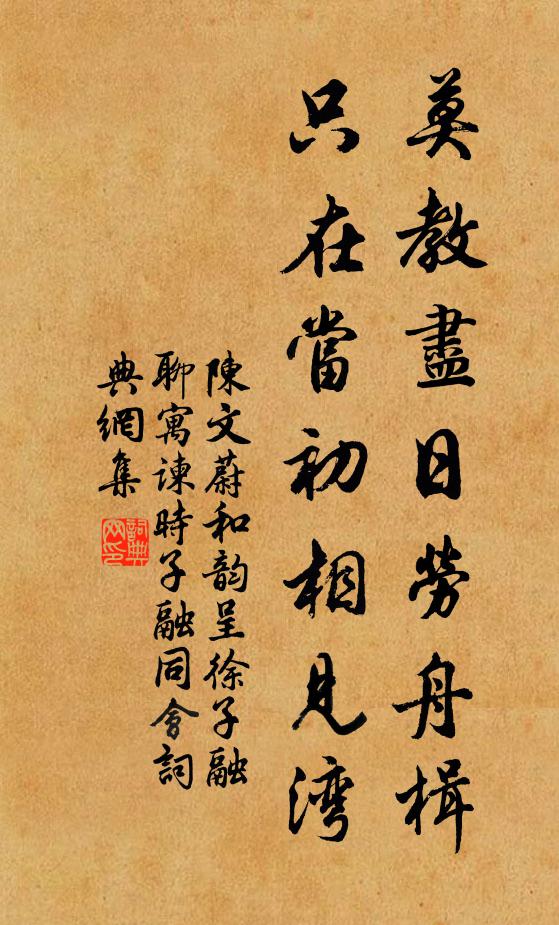 莫教盡日勞舟楫
只在當初相見湾
陳文蔚和韵呈徐子融
聊寓諫時子融同會詞
典網集
詞典网印